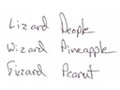 Lizard People
Wizard Pineapple
Gizzard Peanut